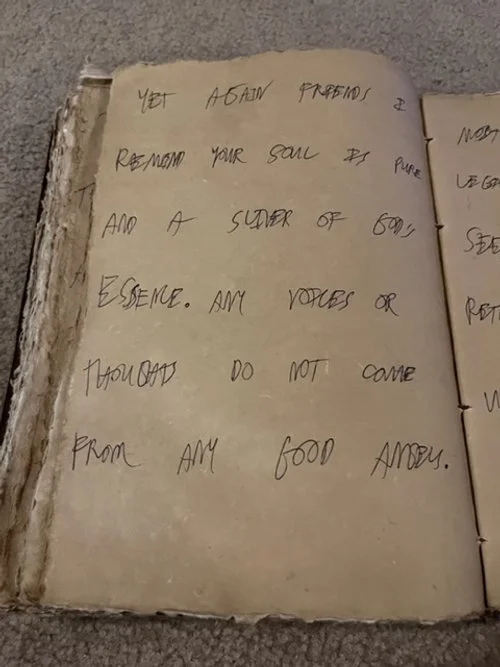 YET AGAIN FRIENDS I
REMIND YOUR SOUL IS PURE
AND A SLIVER OF GODS
ESSENCE. ANY VOICES OR
THOUGHTS DO NOT COME
FROM ANY GOOD ANGEL.
SEE